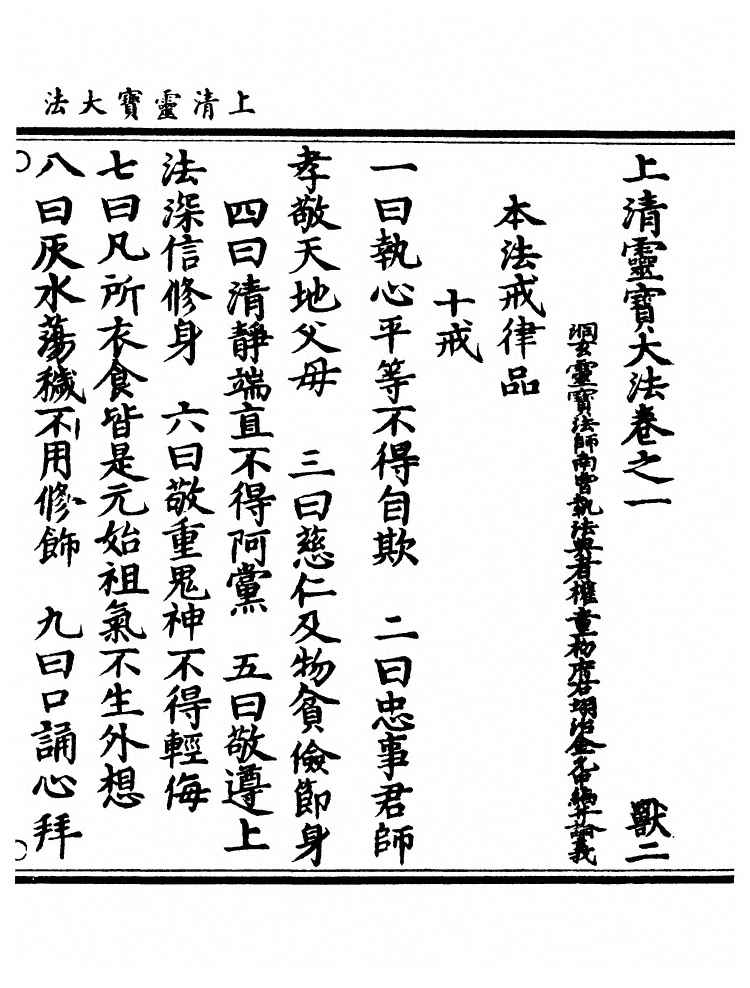 上清靈寶大法
上清靈寶大法卷之一　獸二
洞玄靈寶法師南曹執法典者權童初府右翊治金允中編并論義
本法戒律品
十戒
一曰執心平等不得自欺　二曰忠事君師
孝敬天地父母　三曰慈仁及物貧儉節身
四曰清靜端直不得阿黨　五曰敬遵上
法深信修身　六曰敬重鬼神不得輕侮
七曰凡所衣食皆是元始祖氣不生外想
八曰灰水蕩穢不用修飾　九曰口誦心拜